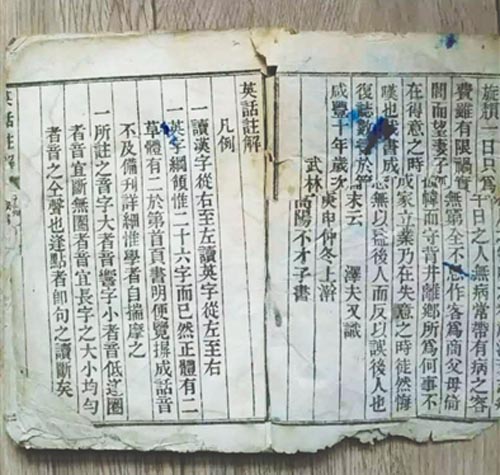 旋一日只為半日之人無病常帶有病之容
費雖有限禍害無窮全不思作客為商父母倚
閭而望妻子幃而守背井離鄉所為何事不
在得意之時成家立業乃在失意之時徒然悔
嘆也書成無以益後人而反以誤後人也
復誌數語於末云 澤夫又識
咸豐十年歲次庚申仲冬上澣
武林高陽不才子書
英話註解
凡例
一讀漢字從右至左讀英字從左至右
一英字綱領惟二十六字而已然正體有二
草體有二於第首頁書明便覽摒成話音
不及備刊詳細惟學者自揣摩之
一所註之音字大者音響字小者音低逢圈
者音宜斷無圈者音宜長字之大小均勻
者音之全聲也逢點者即句之讀斷矣
英話註解